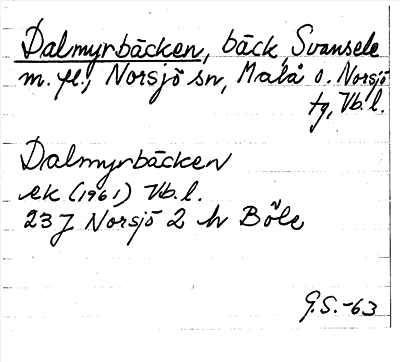 Dalmyrbäcken, bäck, Svansele
m. fl., Norsjö sn, Malå o. Norsjö
tg, Vb. l.
Dalmyrbäcken
ek (1961) Vb. l.
23 J Norsjö 2 h Böle
G.S.-63